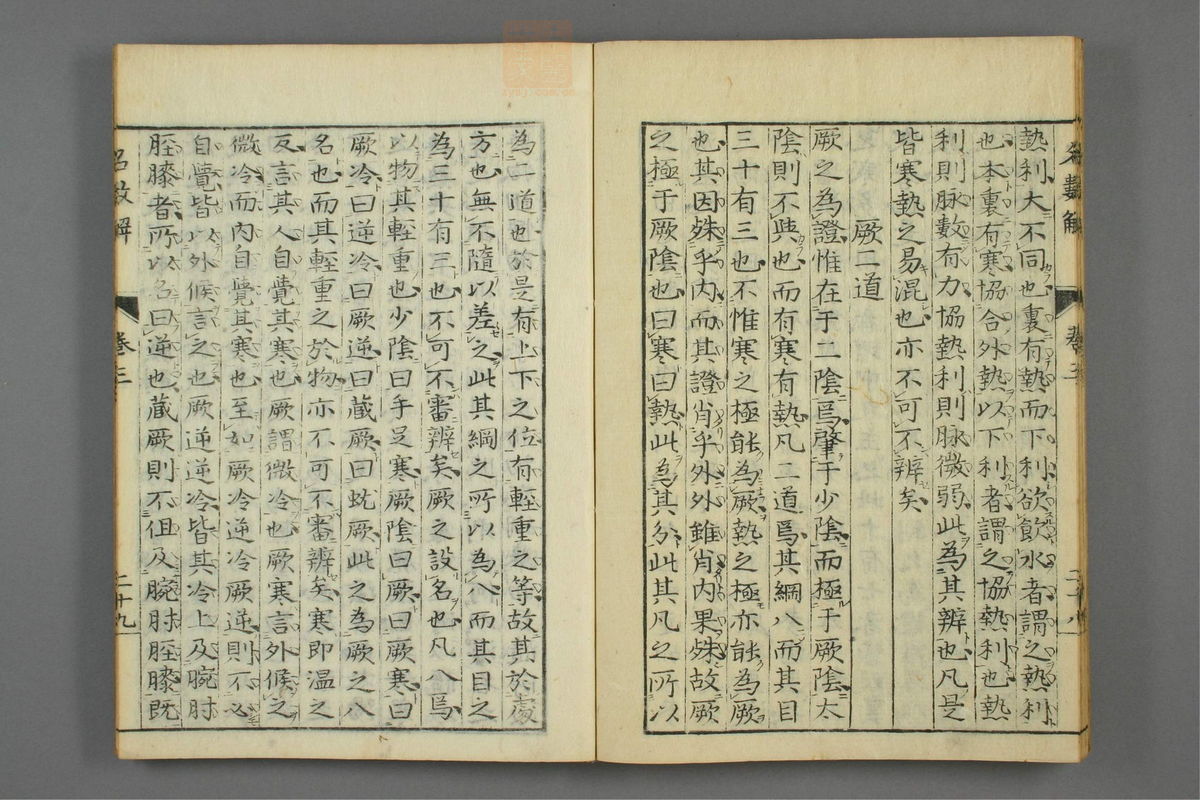 熱利大不同也裏有熱而下利欲飮水者謂之熱利
也本裏有寒協合外熱以下利者謂之協熱利也熱
利則脉數有力協熱利則脉微弱此為其辨也凡是
皆寒熱之易混也亦不可不辨矣
厥二道
厥之為證惟在于二陰焉肇于少陰而極于厥陰太
陰則不與也而有寒有熱凡二道焉其綱八而其目
三十有三也不惟寒之極能為厥熱之極亦能為厥
也其因殊乎内而其證肖乎外外雖肖内果殊故厥
之極于厥陰也曰寒曰熱此為其分此其凡之所以
為二道也於是有上下之位有輕重之等故其於處
方也無不隨以差之此其綱之所以為八而其目之
為三十有三也不可不審辨矣厥之設名也凡八焉
以物其輕重也少陰曰手足寒厥陰曰厥曰厥寒曰
厥冷曰逆冷曰厥逆曰藏厥曰蚘厥此之為厥之八
名也而其輕重之於物亦不可不審辨矣寒即温之
反言其人自覺其寒也厥謂微冷也厥寒言外候之
微冷而内自覺其寒也至如厥冷逆冷厥逆則不必
自覺皆以外候言之也厥逆逆冷皆其冷上及腕肘
脛膝者所以名曰逆也藏厥則不伹及腕肘脛膝既
名數解
卷三
二十九